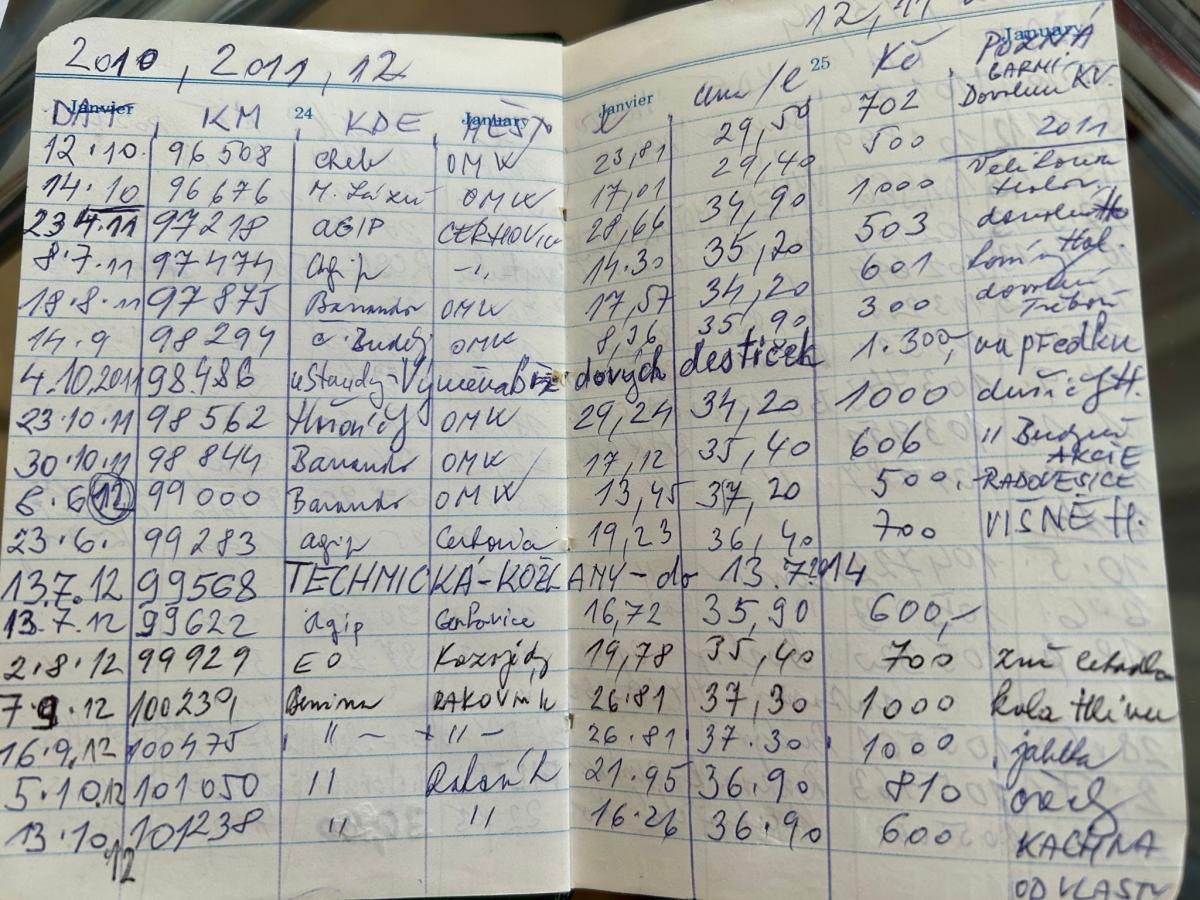 2010, 2011, 12
Janvier 24 January
DAT KM KDE MĚSTO
12.10. 96508 Cheb OMW 23,81 29,50 702
14.10 96676 M. Lázně OMW 17,01 29,40 500
23 4.11 97218 AGIP CERHOVICE 28,66 34,90 1000
8.7.11 97474 Agip -"- 14.30 35,20 503
18.8.11 97875 Barrandov OMW 17,57 34,20 601
14.9 98294 č. Buděj OMW 8,36 35,90 300
4.10.2011 98.486 u Standy-Výměna Brzdových destiček 1.300,- na předku
23.10.11 98562 OMW 29,24 34,20 1000 dušičky H.
30.10.11 98844 Barrandov OMW 17,12 35,40 606 "
8.6 12 99000 Barrandov OMW 13,45 37,20 500,- RADOVESICE
23.6. 99283 agip Cerhovice 19,23 36,40 700 VIŠNĚ H.
13.7.12 99568 TECHNICKÁ-KOŽLANY-do 13.7.2014
13.7.12 99622 Agip Cerhovice 16,72 35,90 600,-
2.8.12 99929 EO Kozojedy 19,78 35,40 700
7 9.12 100239 Benina RAKOVNIK 26.81 37,30 1000 kola
16.9.12 100475 "- -"- 26.81 37.30 1000 jablka
5.10.12 101050 " Rakovník 21.95 36.90 810 ořechy
13.10.12 101238 " " 16.26 36.90 600 KACHNA
OD VLASTY
12, 11
Janvier 25 January
cena/l Kč POZNÁ
GARNI
Dovolená KV.
2011
AKCIE